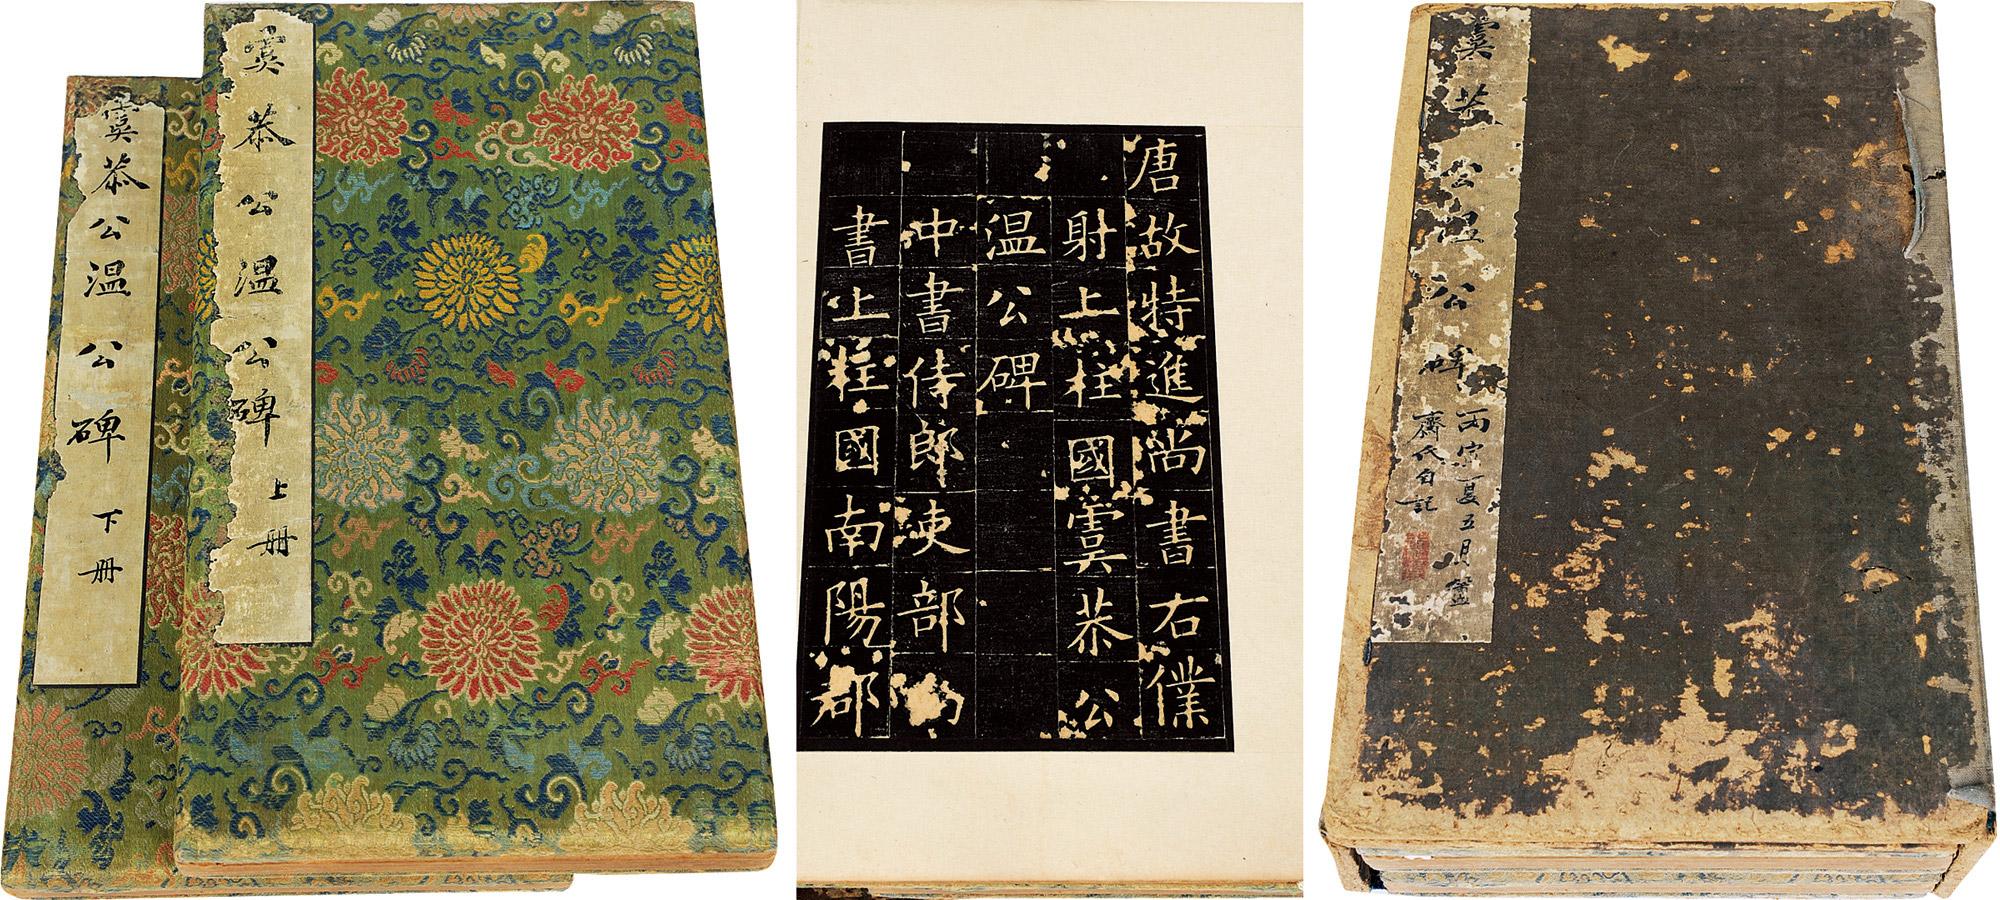 虞恭公温公碑 下册
虞恭公温公碑 上册
唐故特進尚書右僕
射上柱國虞恭公
温公碑
中書侍郎 部
書上柱國南陽郡
虞恭公温公碑
丙寅夏五月
齋氏自記